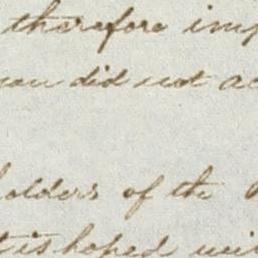 therefore imp
you did not ac
holders of the
it is hoped wit